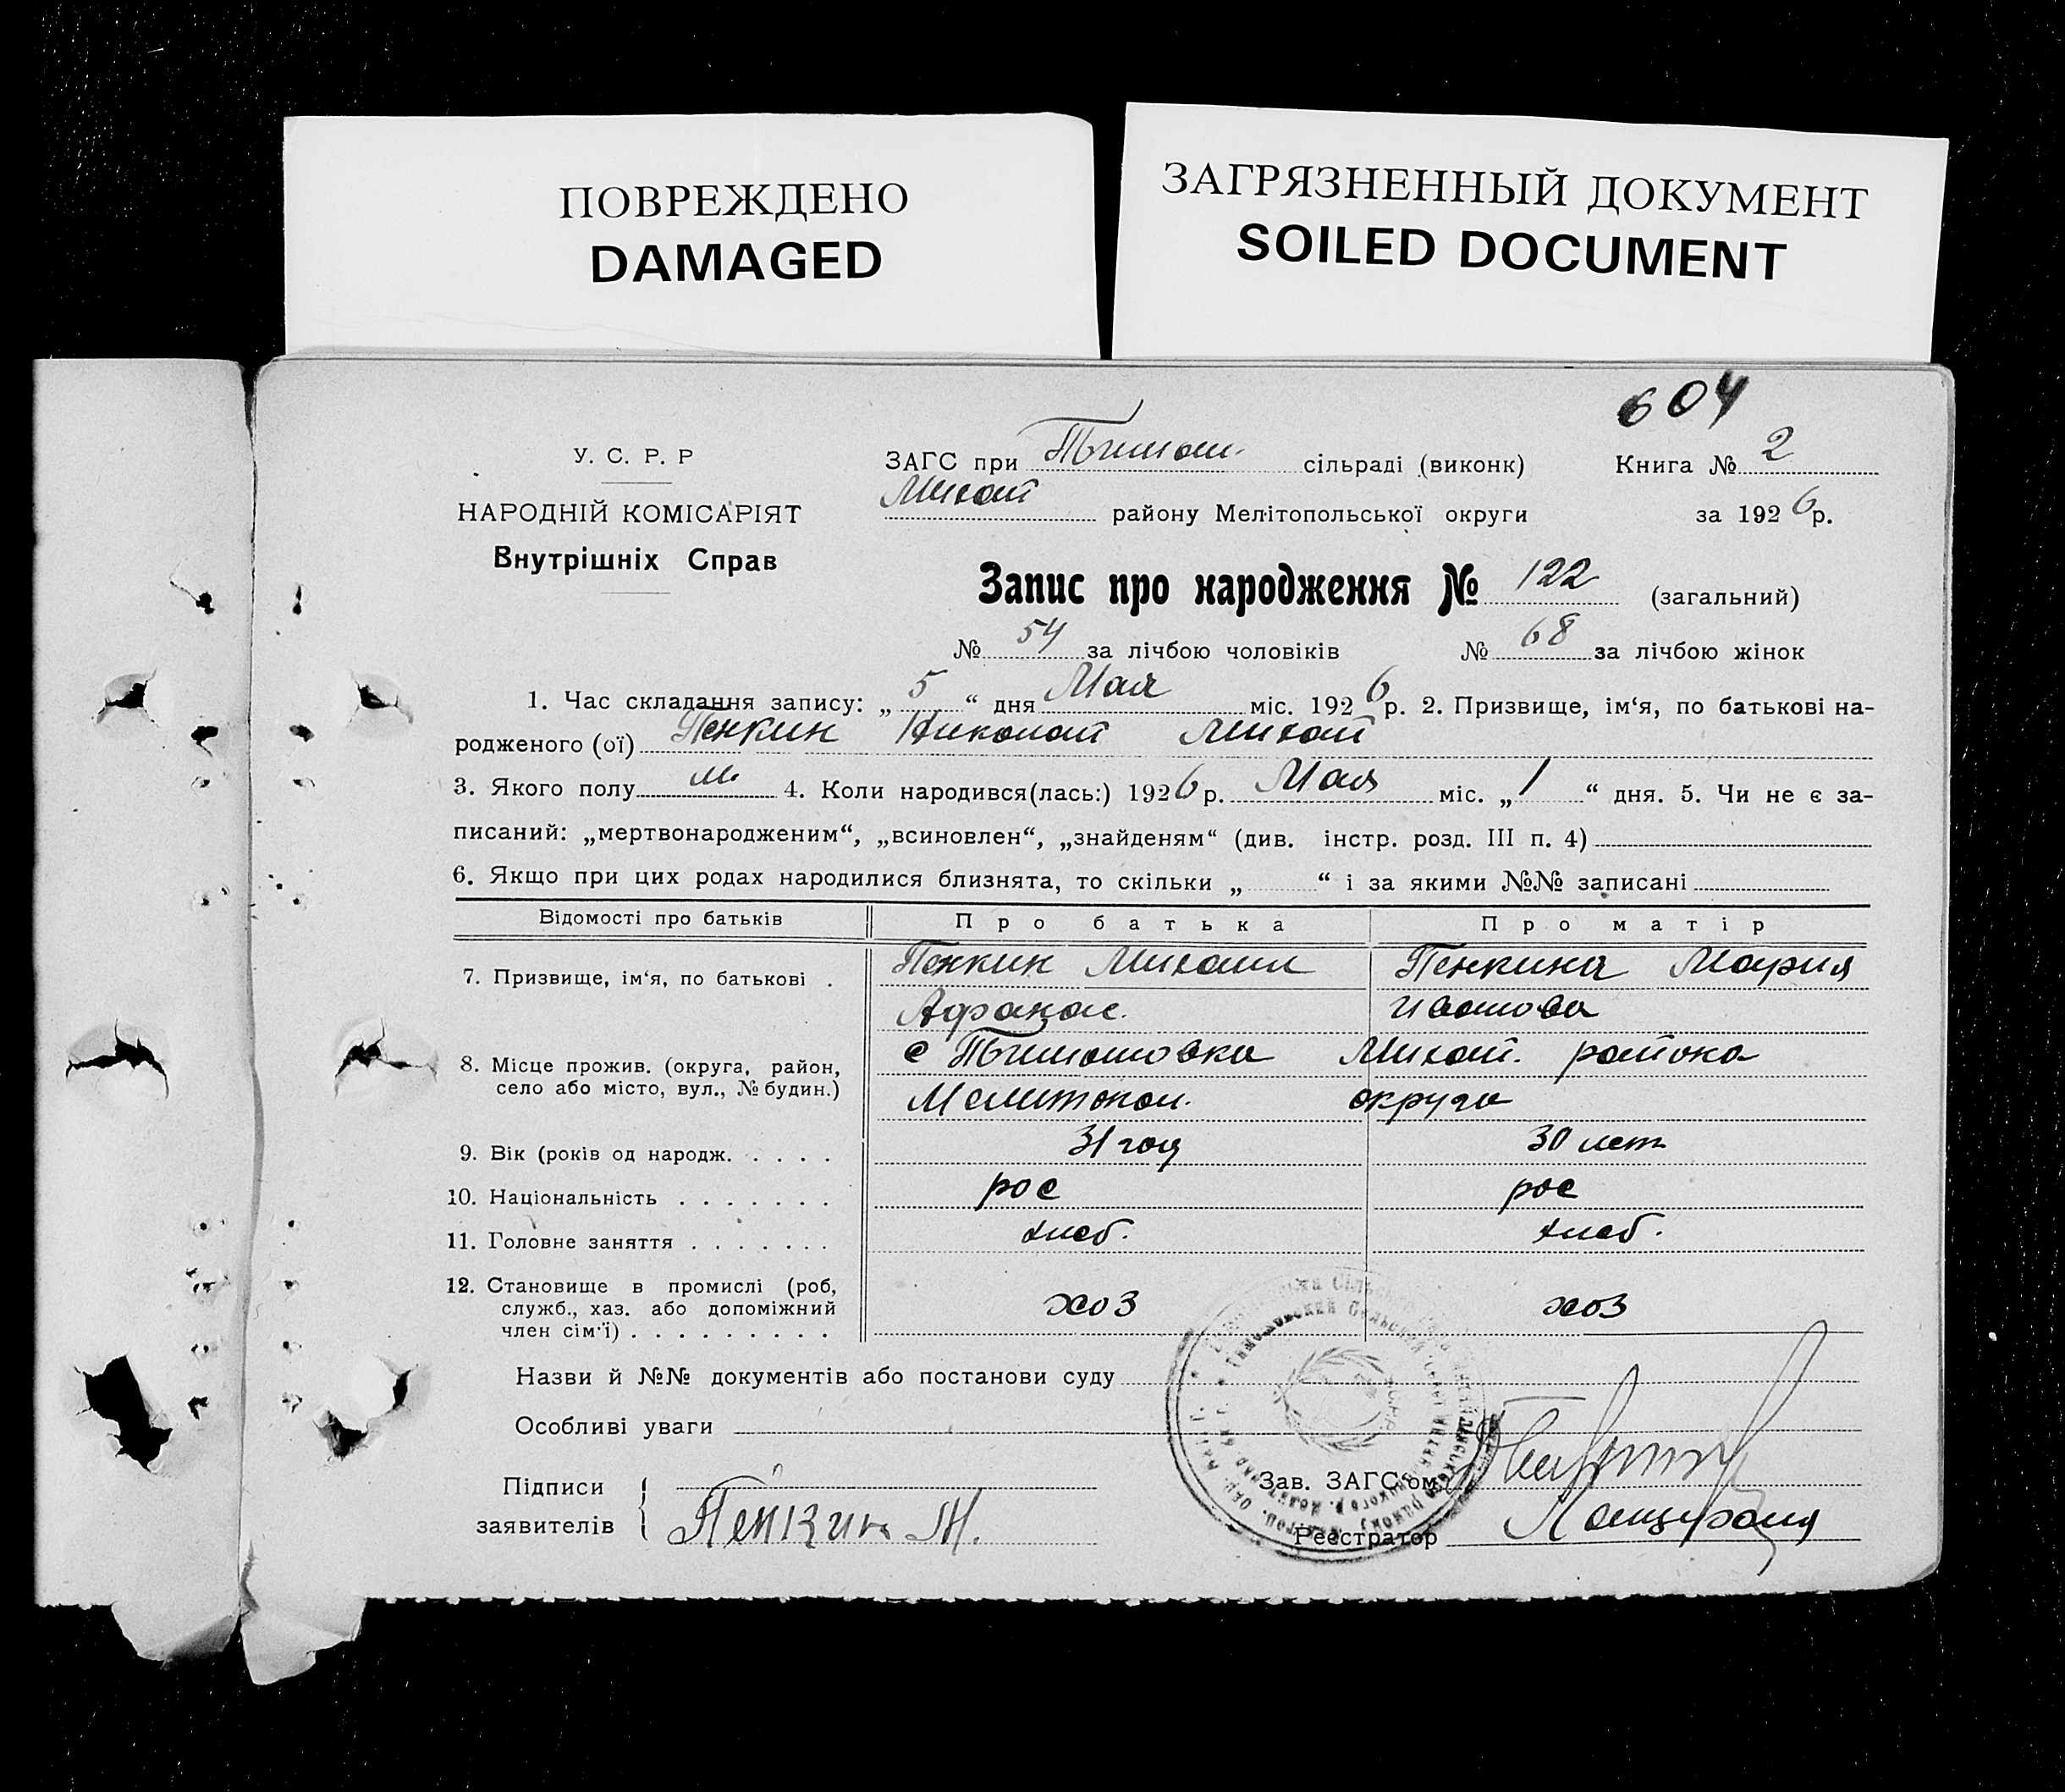 ПОВРЕЖДЕНО
DAMAGED
ЗАГРЯЗНЕННЫЙ ДОКУМЕНТ
SOILED DOCUMENT
604
У. С. Р. Р
НАРОДНІЙ КОМІСАРІЯТ
Внутрішніх Справ
ЗАГС при Тимош. сільраді (виконк) Книга № 2
Михай району Мелітопольської округи за 1926 р.
Запис про народження № 122 (загальний)
№ 54 за лічбою чоловіків № 68 за лічбою жінок
1. Час складання запису: „ 5 “ дня Мая міс. 1926 р. 2. Призвище, ім‘я, по батькові на-
родженого (ої) Пенкин Николай Михай
3. Якого полу м. 4. Коли народився(лась:) 1926 р. Мая міс. „ 1 “ дня. 5. Чи не є за-
писаний: „мертвонародженим“, „всиновлен“, „знайденям“ (див. інстр. розд. III п. 4)
6. Якщо при цих родах народилися близнята, то скільки „ “ і за якими №№ записані
Відомості про батьків Про батька Про матір
7. Призвище, ім‘я, по батькові . Пенкин Михаил Пенкина Мария
Афанас. Ивановна
8. Місце прожив. (округа, район, село або місто, вул., № будин.) с Тимошовка Михай. района
Мелитопол. округа
9. Вік (років од народж. . . . . 31 год 30 лет
10. Національність . . . . . . . рос рос
11. Головне заняття . . . . . . . хлеб. хлеб.
12. Становище в промислі (роб,
служб., хаз. або допоміжний
член сім‘ї) . . . . . . . . . хоз хоз
Назви й №№ документів або постанови суду
Особливі уваги
Підписи
заявителів Пенкин М.
Зав. ЗАГС‘ом
Реєстратор